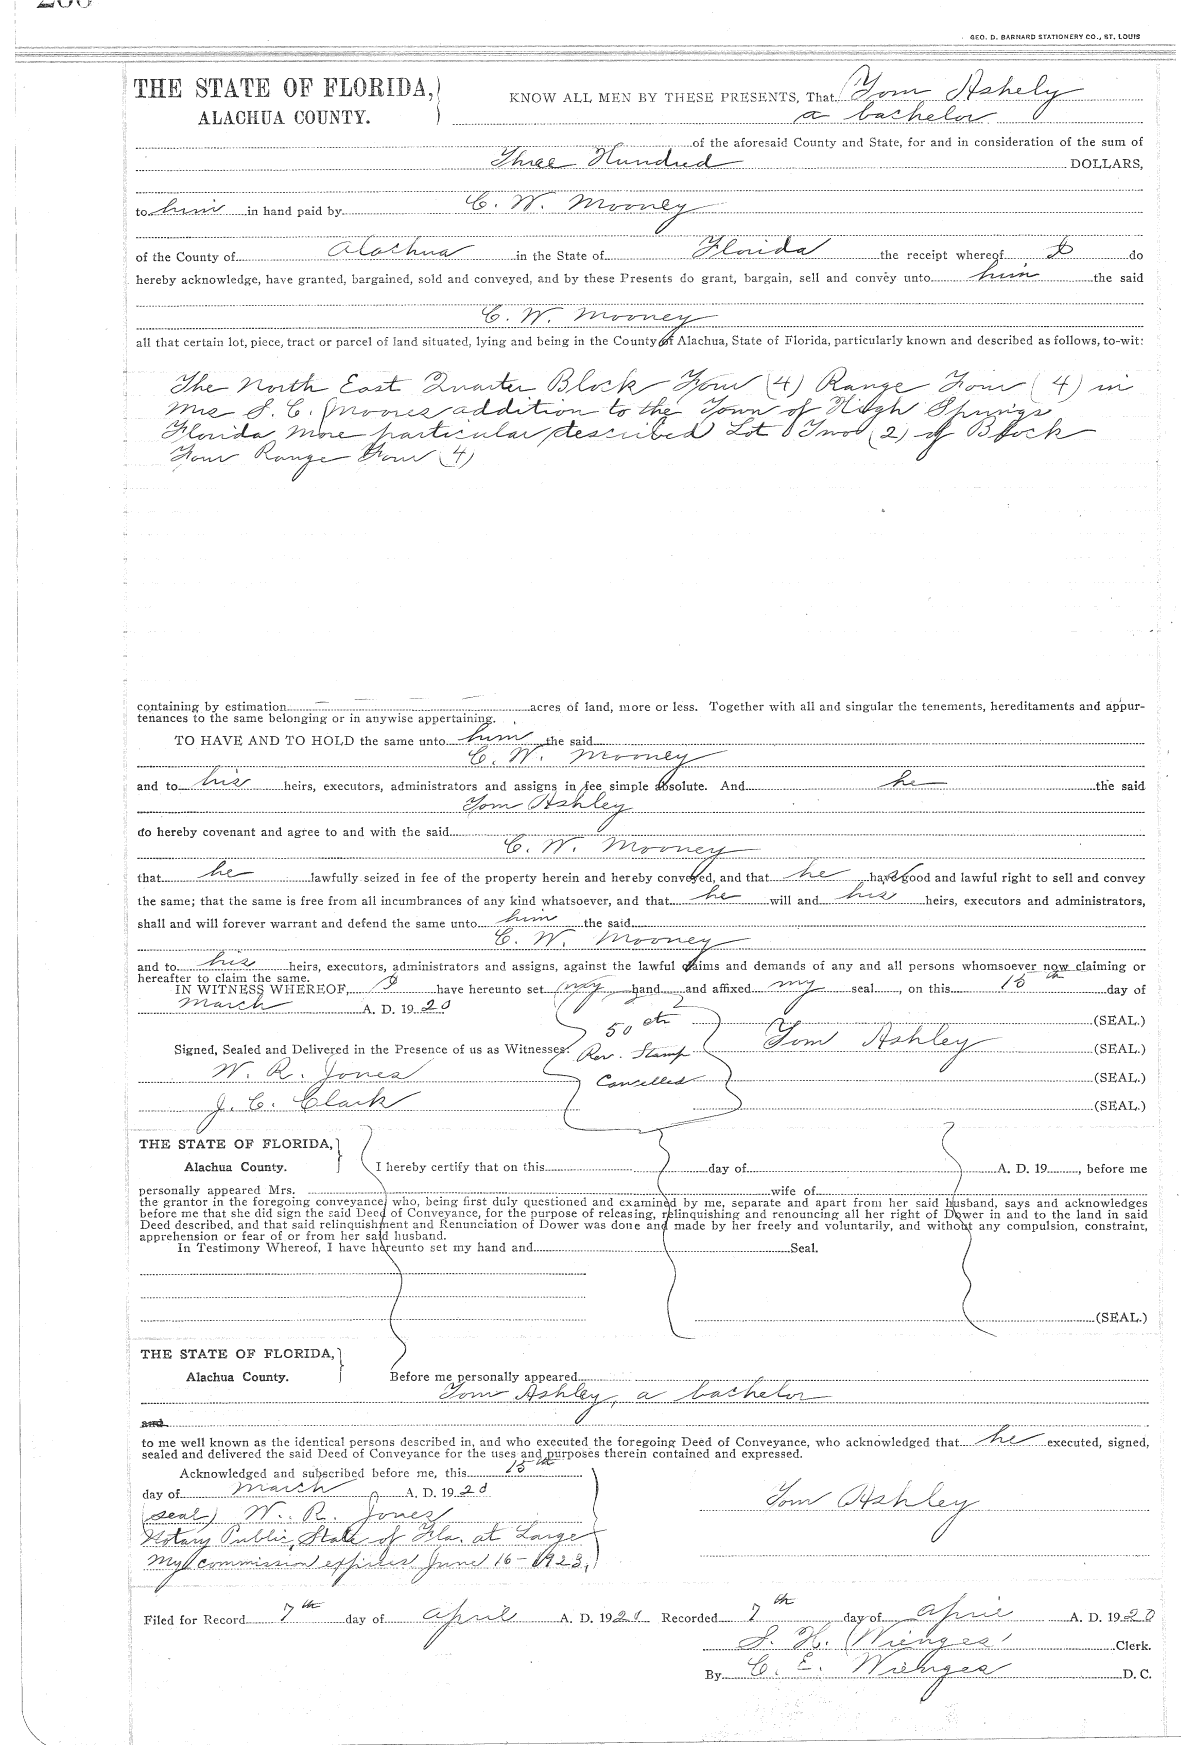 GEO. D. BARNARD STATIONERY CO., ST. LOUIS
THE STATE OF FLORIDA,
ALACHUA COUNTY.
KNOW ALL MEN BY THESE PRESENTS, That Tom Ashely
a bachelor
of the aforesaid County and State, for and in consideration of the sum of
Three Hundred DOLLARS,
to him in hand paid by C. W. Mooney
of the County of Alachua in the State of Florida the receipt whereof do
hereby acknowledge, have granted, bargained, sold and conveyed, and by these Presents do grant, bargain, sell and convey unto him the said
C. W. Mooney
all that certain lot, piece, tract or parcel of land situated, lying and being in the County of Alachua, State of Florida, particularly known and described as follows, to-wit:
The North East Quarter Block Four (4) Range Four (4) in
Mrs S. C. Moores addition to the Town of High Springs
Florida More particular described Lot Two (2) of Block
Four Range Four (4)
containing by estimation acres of land, more or less. Together with all and singular the tenements, hereditaments and appur-
tenances to the same belonging or in anywise appertaining.
TO HAVE AND TO HOLD the same unto him the said
C. W. Mooney
and to his heirs, executors, administrators and assigns in fee simple absolute. And he the said
Tom Ashley
do hereby covenant and agree to and with the said
C. W. Mooney
that he lawfully seized in fee of the property herein and hereby conveyed, and that he good and lawful right to sell and convey
the same; that the same is free from all incumbrances of any kind whatsoever, and that he will and his heirs, executors and administrators,
shall and will forever warrant and defend the same unto him the said
C. W. Mooney
and to his heirs, executors, administrators and assigns, against the lawful claims and demands of any and all persons whomsoever now claiming or
hereafter to claim the same.
IN WITNESS WHEREOF, I have hereunto set my hand and affixed my seal, on this 15th day of
March A. D. 1920
(SEAL.)
50 cts
Rev. Stamp
Cancelled
Tom Ashley (SEAL.)
Signed, Sealed and Delivered in the Presence of us as Witnesses:
W. R. Jones (SEAL.)
J. C. Clark (SEAL.)
THE STATE OF FLORIDA,
Alachua County.
I hereby certify that on this day of A. D. 19 , before me
personally appeared Mrs. wife of
the grantor in the foregoing conveyance, who, being first duly questioned and examined by me, separate and apart from her said husband, says and acknowledges
before me that she did sign the said Deed of Conveyance, for the purpose of releasing, relinquishing and renouncing all her right of Dower in and to the land in said
Deed described, and that said relinquishment and Renunciation of Dower was done and made by her freely and voluntarily, and without any compulsion, constraint,
apprehension or fear of or from her said husband.
In Testimony Whereof, I have hereunto set my hand and Seal.
(SEAL.)
THE STATE OF FLORIDA,
Alachua County.
Before me personally appeared
Tom Ashley, a bachelor
and
to me well known as the identical persons described in, and who executed the foregoing Deed of Conveyance, who acknowledged that he executed, signed,
sealed and delivered the said Deed of Conveyance for the uses and purposes therein contained and expressed.
Acknowledged and subscribed before me, this 15th
day of March A. D. 1920
(seal) W. R. Jones
Notary Public, State of Fla. at Large
My commission expires June 16-1923,
Tom Ashley
Filed for Record 7th day of April A. D. 1920 Recorded 7th day of April A. D. 1920
S. H. Wienges Clerk.
By C. E. Wienges D. C.